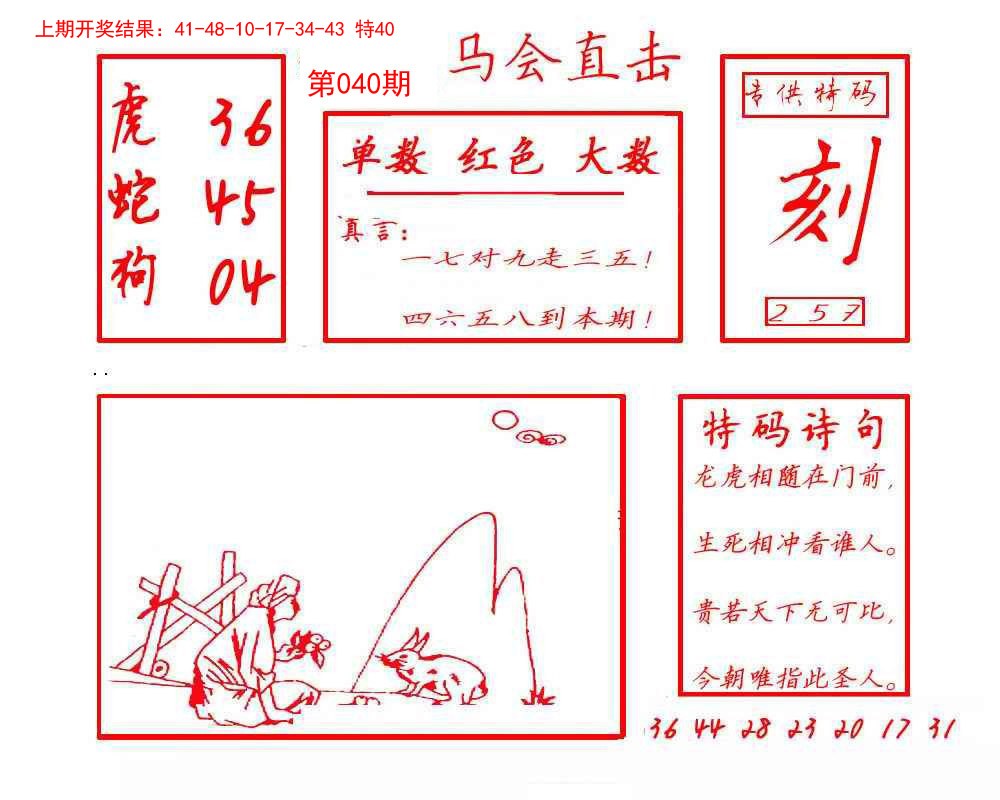 上期开奖结果：41-48-10-17-34-43 特40
马会直击
第040期
虎 36
蛇 45
狗 04
单数 红色 大数
真言：
一七对九走三五！
四六五八到本期！
专供特码
刻
2 5 7
特码诗句
龙虎相随在门前,
生死相冲看谁人。
贵若天下无可比,
今朝唯指此圣人。
36 44 28 23 20 17 31